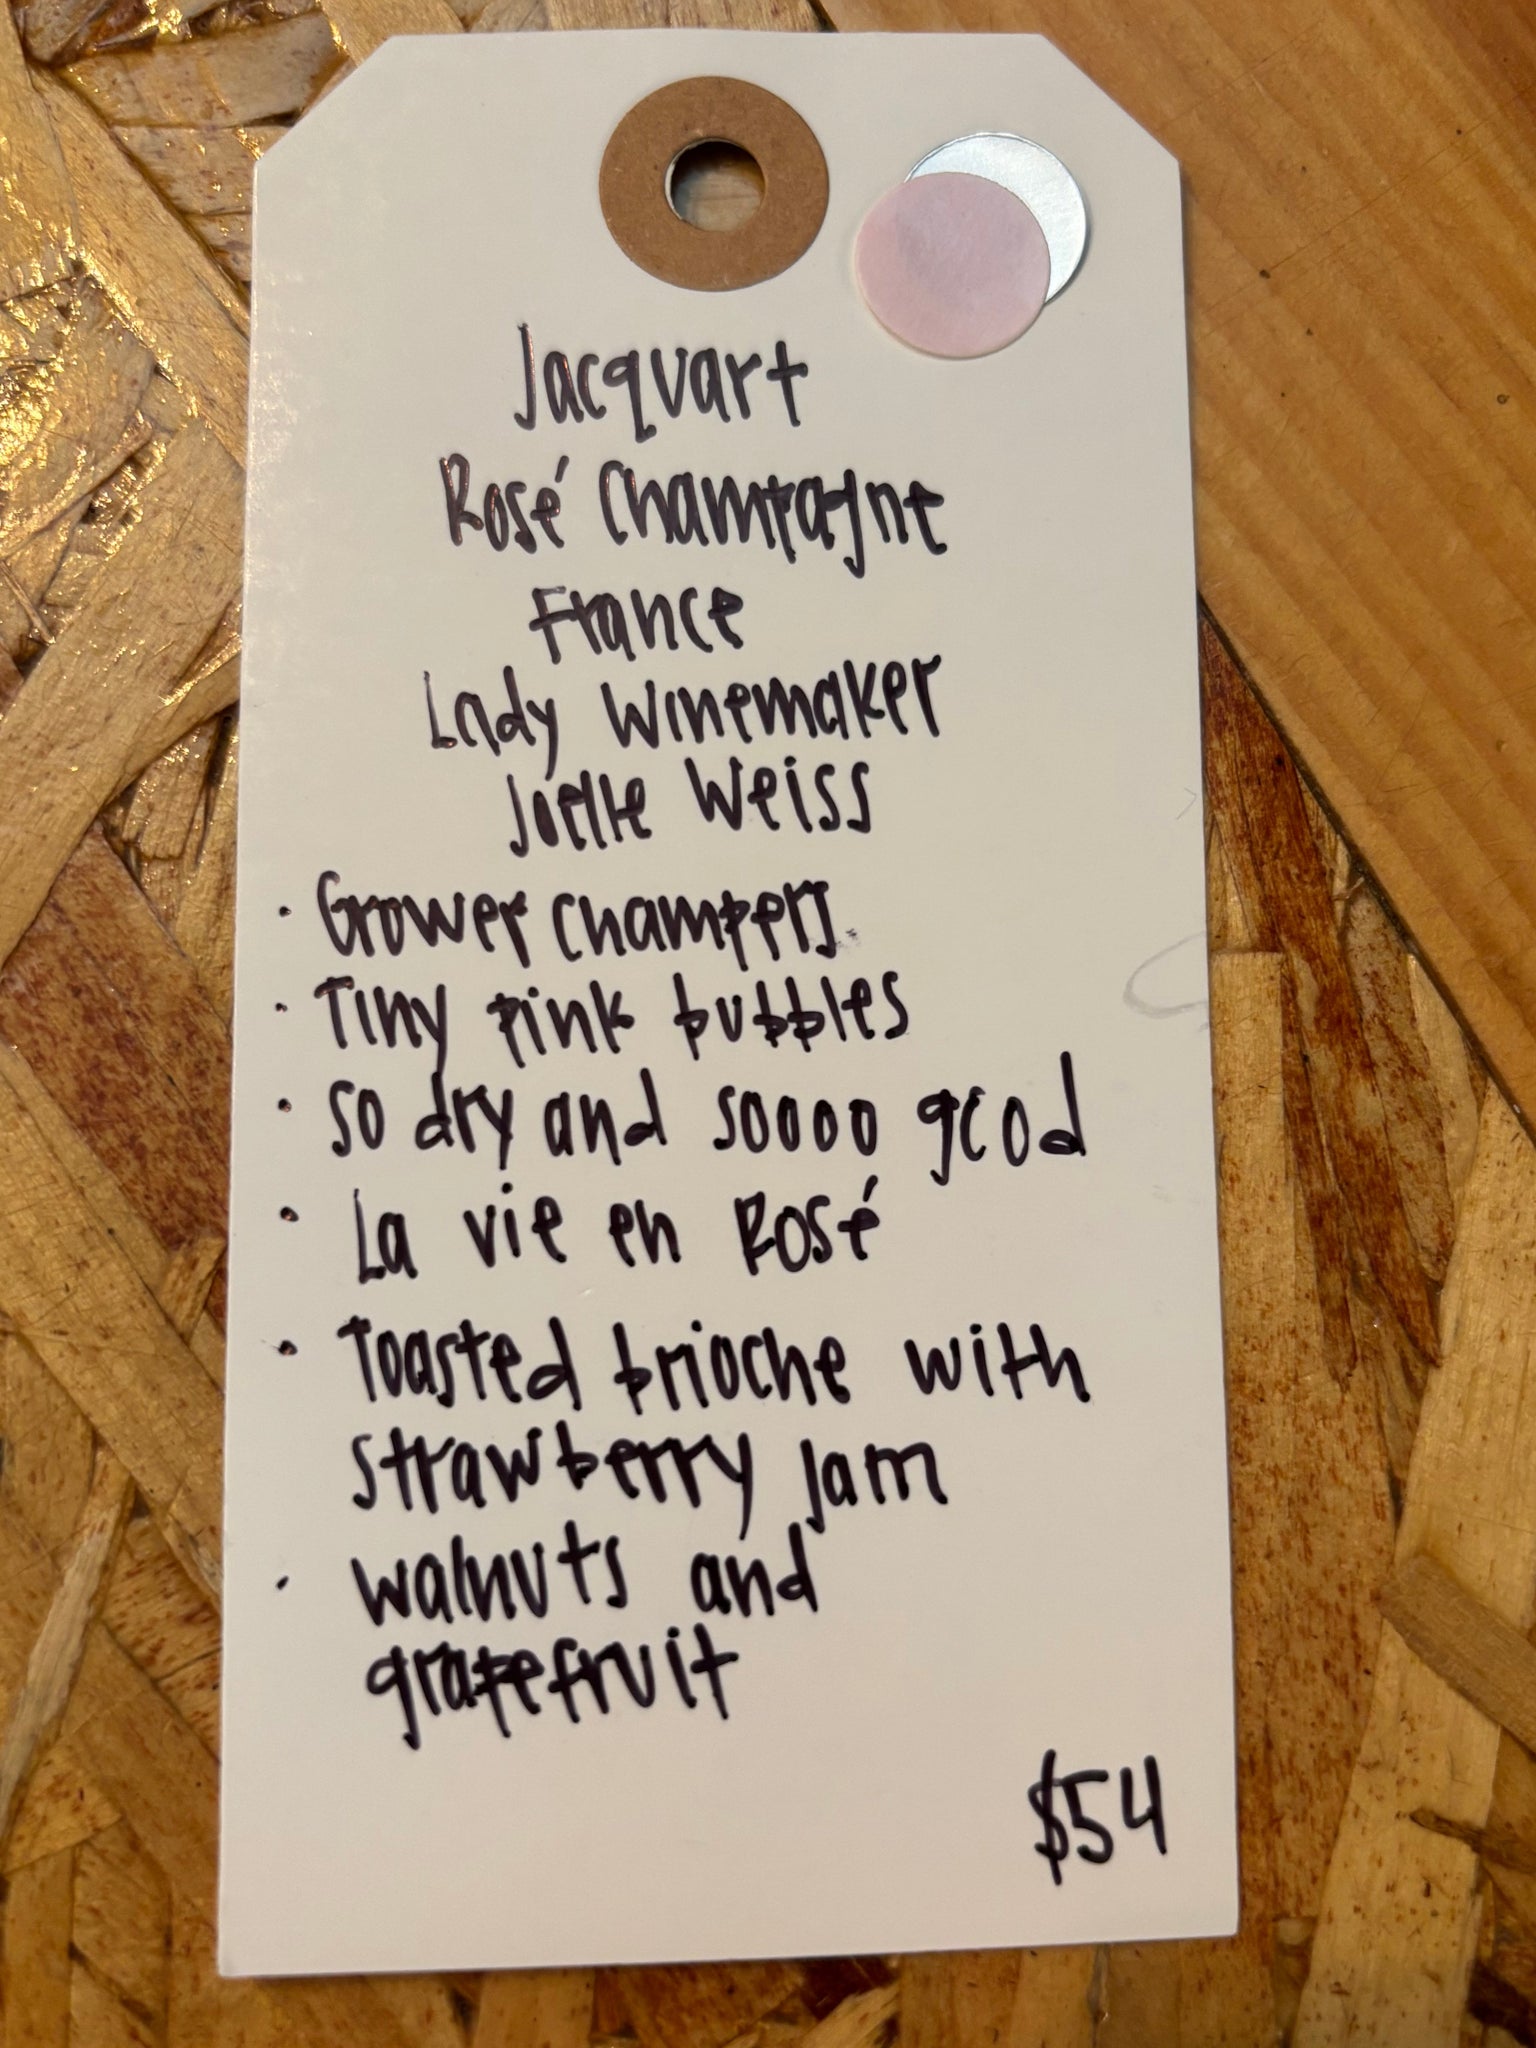 Jacquart
Rosé Champagne
France
Lady Winemaker
Joëlle Weiss
· Grower Champers
· Tiny pink bubbles
· So dry and soooo good
· La vie en Rosé
· Toasted brioche with
strawberry jam
· walnuts and
grapefruit
$54